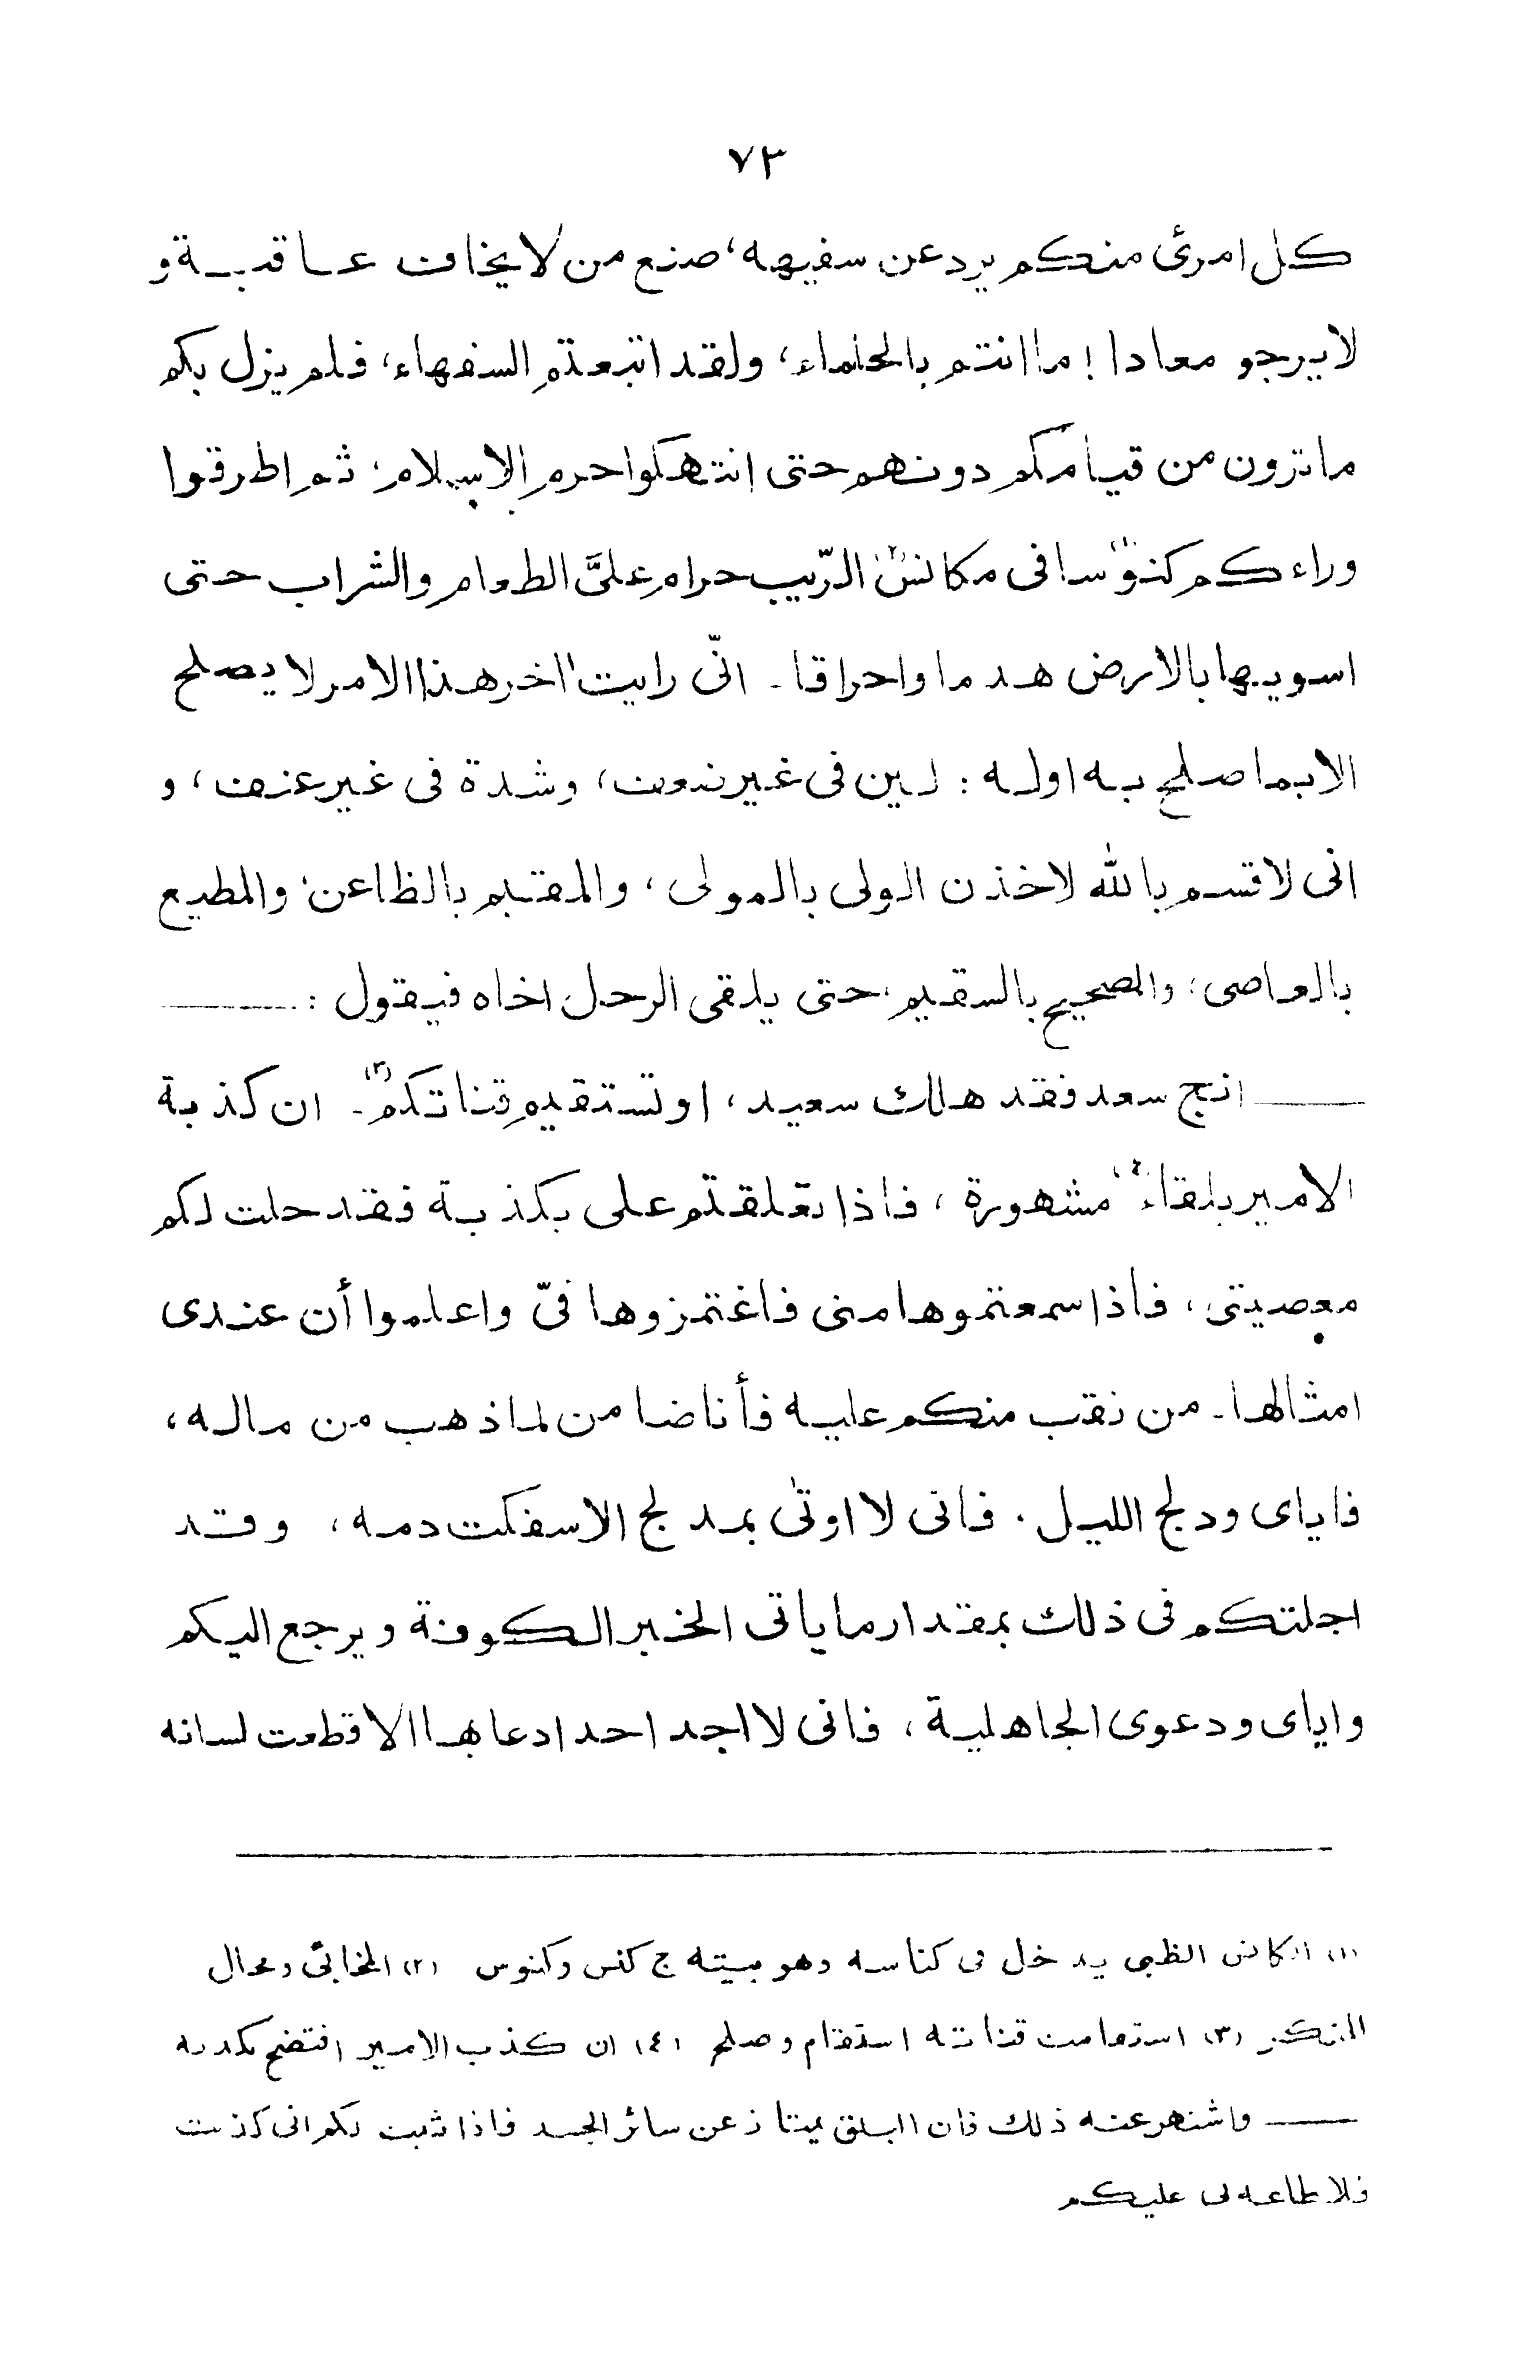 ٧٣
كل امرئ منكم يرد عن سفيهه، صنع من لا يخاف عاقبة و
لا يرجو معادا! ما انتم بالحلماء، ولقد اتبعتم السفهاء، فلم يزل بكم
ما ترون من قيامكم دونهم حتى انتهكوا حرم الاسلام، ثم اطرقوا
وراءكم كنوسا(١) فى مكانس(٢) الرّيب حرام علىَّ الطعام والشراب حتى
اسويها بالارض هدما واحراقا ـ انّى رايت اٰخر هذا الامر لا يصلح
الا بما صلح به اوله : لين فى غير ضعف، وشدة فى غير عنف، و
انى لاقسم بالله لاخذن الولى بالمولى، والمقيم بالظاعن، والمطيع
بالعاصى، والصحيح بالسقيم، حتى يلقى الرحل اخاه فيقول :ـــــ
ـــــ انج سعد فقد هلك سعيد، او تستقيم قناتكم(٣) ـ ان كذبة
الامير بلقاء(٤) مشهورة، فاذا تعلقتم على بكذبة فقد حلت لكم
معصيتى، فاذا سمعتموها منى فاغتمزوها فىّ واعلموا أن عندى
امثالها ـ من نقب منكم عليه فأنا ضامن لما ذهب من ماله،
فاياى ودلج الليل. فانى لا اوتٰى بمدلج الا سفكت دمه، وقد
اجلتكم فى ذلك بمقدار ما ياتى الخبر الكوفة ويرجع اليكم
واياى ودعوى الجاهلية، فانى لا اجد احد ادعا بها الا قطعت لسانه
(١) الكانس الظبى يدخل فى كناسه وهو بيته ج كنس وكنوس (٢) المخابئ ومحال
(٣) استقامت قناته استقام وصلح (٤) ان كذب الامير افتضح بكذبه
ـــــ واشتهر عنه ذلك فان البلق يمتاز عن سائر الجسد فاذا ثبت لكم انى كذبت
فلا طاعه لى عليكم